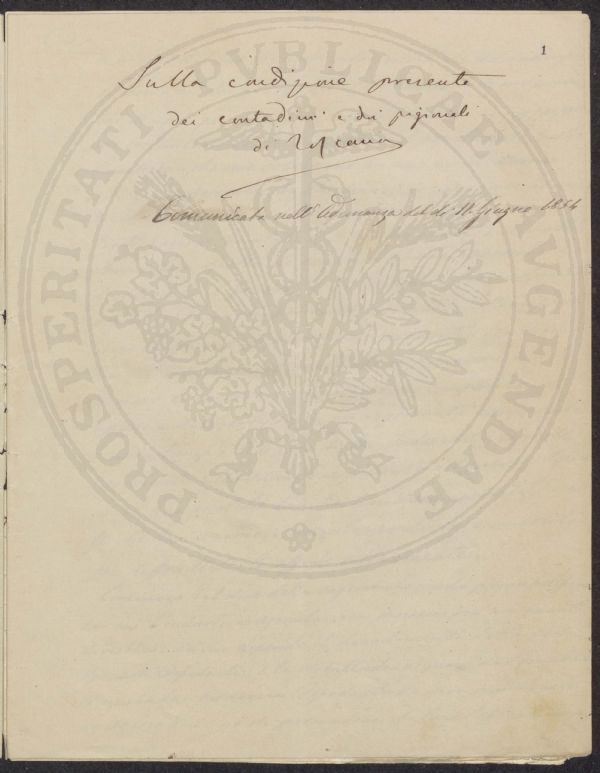 1
Sulla condizione presente
dei contadini e dei pigionali
di Toscana
Comunicata nell'Adunanza del dì 11 Giugno 1854
PROSPERITATI PVBLICAE AVGENDAE